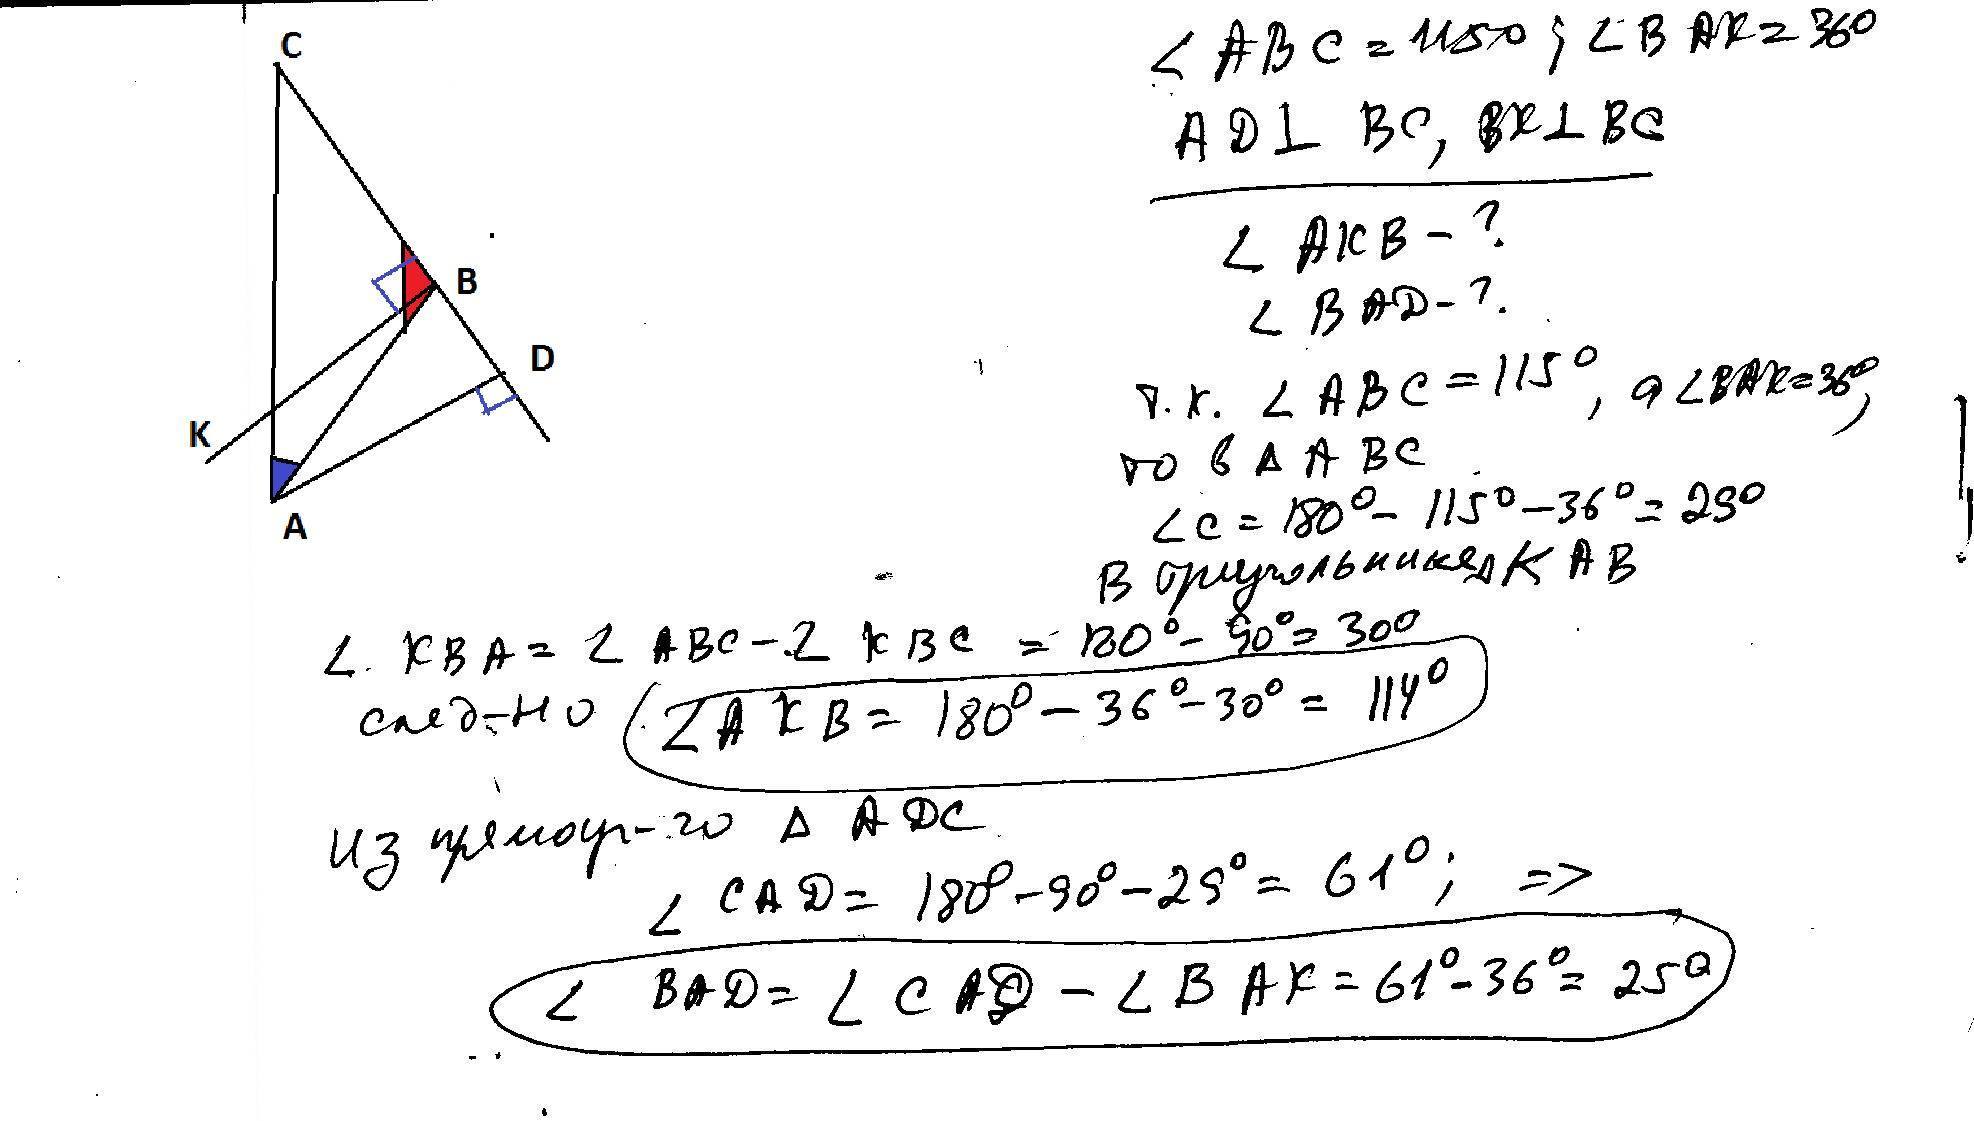 C
B
D
K
A
∠ ABC = 115°; ∠BAK = 36°
AD⊥ BC, BK⊥BC
∠ AKB - ?
∠ BAD - ?.
т.к. ∠ ABC = 115°, а ∠BAK = 36°,
то в Δ ABC
∠C = 180° - 115° - 36° = 29°
В треугольнике Δ KAB
∠. KBA = ∠ ABC - ∠ KBC = 120° - 90° = 30°
след-но ∠AKB = 180° - 36° - 30° = 114°
Из прямоуг-го Δ ADC
∠ CAD = 180° - 90° - 29° = 61°; =>
∠ BAD = ∠ CAD - ∠ BAK = 61° - 36° = 25°